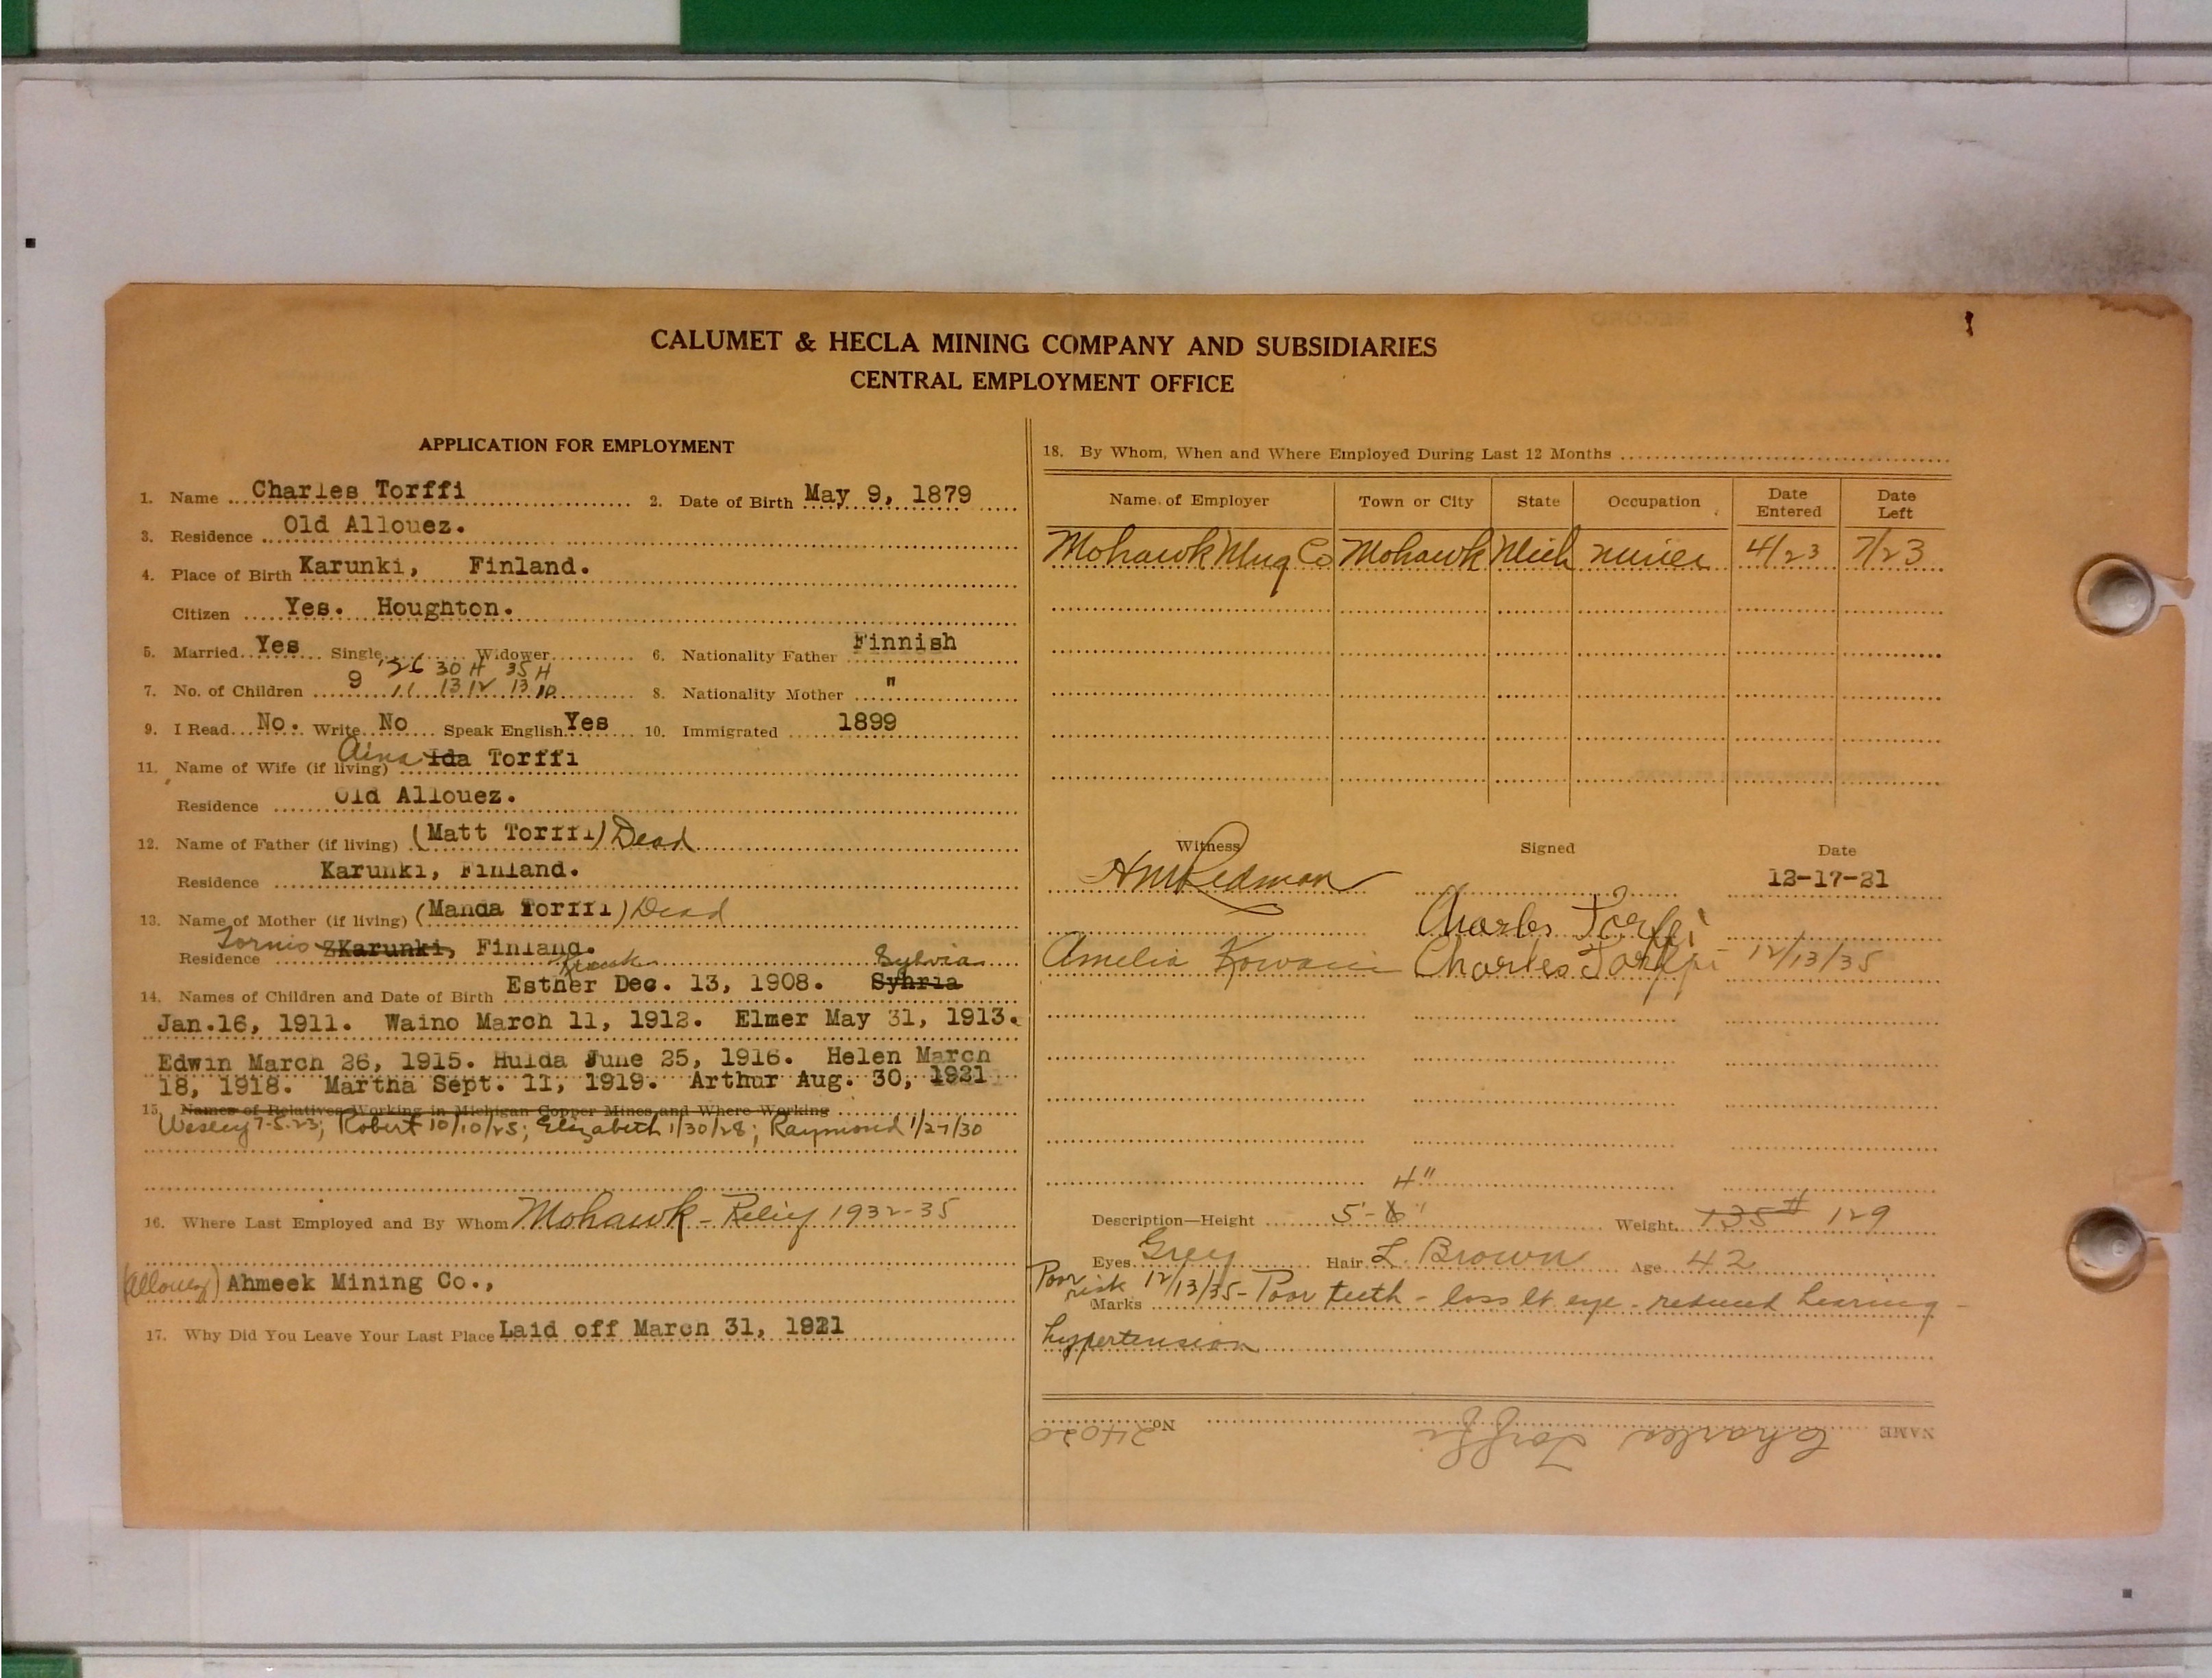 CALUMET & HECLA MINING COMPANY AND SUBSIDIARIES
CENTRAL EMPLOYMENT OFFICE
APPLICATION FOR EMPLOYMENT
1. Name Charles Torffi 2. Date of Birth May 9, 1879
3. Residence Old Allouez.
4. Place of Birth Karunki, Finland.
Citizen Yes. Houghton.
5. Married Yes Single Widower 6. Nationality Father Finnish
'26 30 H 35 H
7. No. of Children 9 11 13 12 13 10 8. Nationality Mother "
9. I Read No. Write No Speak English Yes 10. Immigrated 1899
11. Name of Wife (if living) Aina Ida Torffi
Residence Old Allouez.
12. Name of Father (if living) (Matt Torffi) Dead
Residence Karunki, Finland.
13. Name of Mother (if living) (Manda Torffi) Dead
Residence Tornio Karunki, Finland.
Sylvia
14. Names of Children and Date of Birth Esther Dec. 13, 1908. Syhria
Jan.16, 1911. Waino March 11, 1912. Elmer May 31, 1913.
Edwin March 26, 1915. Hulda June 25, 1916. Helen March
18, 1918. Martha Sept. 11, 1919. Arthur Aug. 30, 1921
15. Names of Relatives Working in Michigan Copper Mines and Where Working
Wesley 7-5-23; Robert 10/10/25; Elizabeth 1/30/28; Raymond 1/27/30
16. Where Last Employed and By Whom Mohawk - Relief 1932-35
(Allouez) Ahmeek Mining Co.,
17. Why Did You Leave Your Last Place Laid off March 31, 1921
18. By Whom, When and Where Employed During Last 12 Months
Name of Employer Town or City State Occupation Date Entered Date Left
Mohawk Mng Co Mohawk Mich miner 4/23 7/23
Witness Signed Date
AM Redman 12-17-21
Charles Torffi
Amelia Charles Torffi 12/13/35
4"
Description—Height 5'-6" Weight 135# 129
Eyes Grey Hair L. Brown Age 42
Poor risk 12/13/35 - Poor teeth - loss lt eye - reduced hearing -
Marks
hypertension
NAME Charles Torffi No. 24020